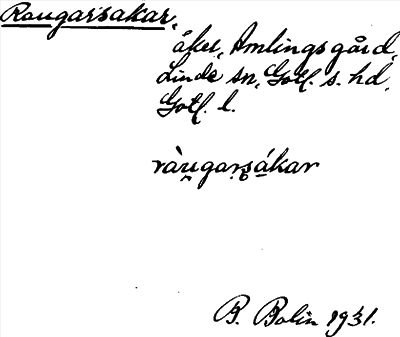 Raugarsakar,
åker, Amlings gård,
Linde sn, Gotl. s. hd,
Gotl. l.
ràu̯garsákar
B. Bolin 1931.